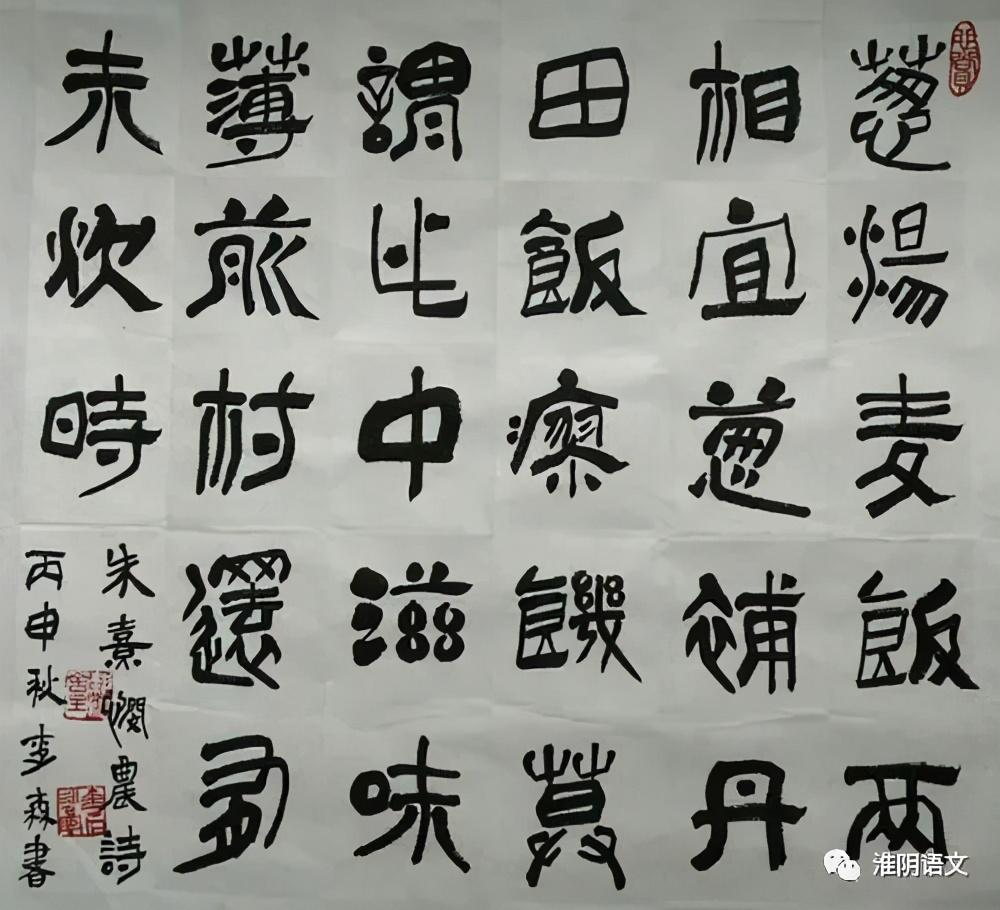 蔥湯麦飯兩
相宜蔥補丹
田飯療饑莫
謂此中滋味
薄前村還有
未炊時
朱熹憫農詩
丙申秋李森書
淮阴语文